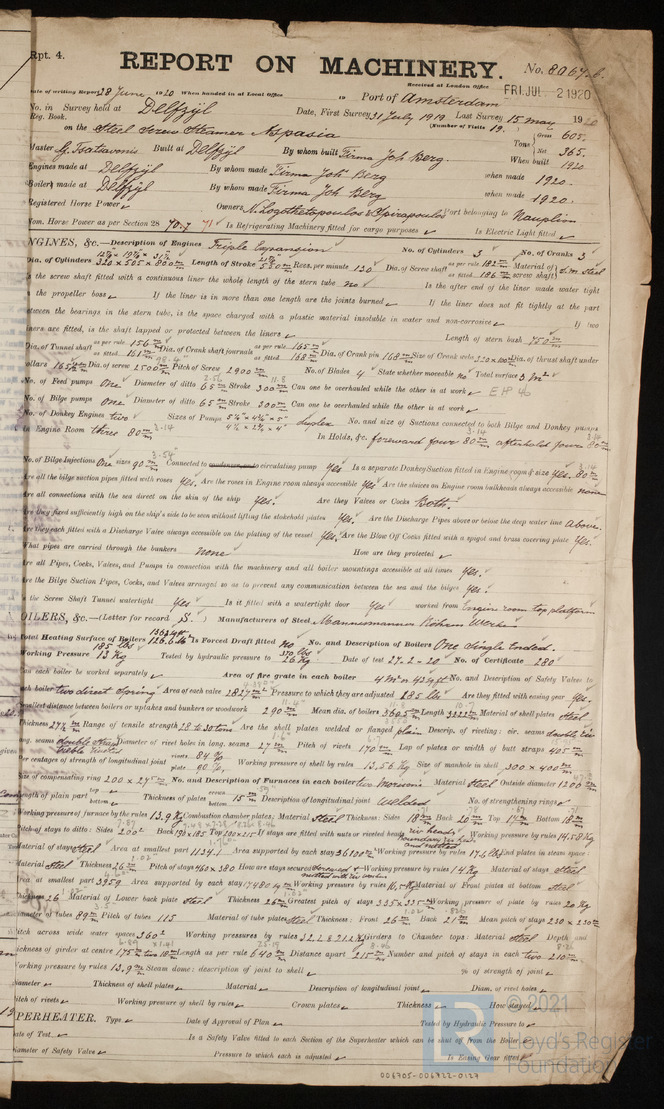 Rpt. 4.
REPORT ON MACHINERY.
No. 80676.
Date of writing Report 28 June 1920 When handed in at Local Office 19 Port of Amsterdam
Received at London Office FRI. JUL - 2 1920
No. in Survey held at Delfzijl Date, First Survey 31 July 1919 Last Survey 15 may 1920
Reg. Book. (Number of Visits 19.)
on the Steel Screw Steamer Aspasia Tons Gross 605. Net 365.
Master G. Tsatsavonis Built at Delfzijl By whom built Firma Joh Berg. When built 1920
Engines made at Delfzijl By whom made Firma Joh Berg when made 1920.
Boilers made at Delfzijl By whom made Firma Joh Berg when made 1920.
Registered Horse Power Owners N. Logothetopoulos & Spiropoulos Port belonging to Nauplion
Nom. Horse Power as per Section 28 70.7 71 Is Refrigerating Machinery fitted for cargo purposes Is Electric Light fitted
ENGINES, &c.—Description of Engines Triple Expansion No. of Cylinders 3 No. of Cranks 3
Dia. of Cylinders 320 x 505 x 800 Length of Stroke 550 Revs. per minute 120 Dia. of Screw shaft as per rule 182 as fitted 186 Material of screw shaft S.m. Steel
Is the screw shaft fitted with a continuous liner the whole length of the stern tube no Is the after end of the liner made water tight
in the propeller boss If the liner is in more than one length are the joints burned If the liner does not fit tightly at the part
between the bearings in the stern tube, is the space charged with a plastic material insoluble in water and non-corrosive If two
liners are fitted, is the shaft lapped or protected between the liners Length of stern bush 750
Dia. of Tunnel shaft as per rule 156 as fitted 161 Dia. of Crank shaft journals as per rule 165 as fitted 168 Dia. of Crank pin 168 Size of Crank webs 320 x 100 Dia. of thrust shaft under
collars 165 Dia. of screw 2500 Pitch of Screw 2900 No. of Blades 4 State whether moveable no Total surface 3 m²
No. of Feed pumps One Diameter of ditto 65 Stroke 300 Can one be overhauled while the other is at work
No. of Bilge pumps One Diameter of ditto 65 Stroke 300 Can one be overhauled while the other is at work
No. of Donkey Engines two Sizes of Pumps duplex No. and size of Suctions connected to both Bilge and Donkey pumps
In Engine Room three 80 In Holds, &c. foreward four 80 afterholds four 80
No. of Bilge Injections One sizes 90 Connected to circulating pump Yes Is a separate Donkey Suction fitted in Engine room & size Yes. 80
Are all the bilge suction pipes fitted with roses Yes. Are the roses in Engine room always accessible Yes Are the sluices on Engine room bulkheads always accessible none
Are all connections with the sea direct on the skin of the ship Yes. Are they Valves or Cocks Both.
Are they fixed sufficiently high on the ship's side to be seen without lifting the stokehold plates Yes. Are the Discharge Pipes above or below the deep water line above.
Are they each fitted with a Discharge Valve always accessible on the plating of the vessel Yes. Are the Blow Off Cocks fitted with a spigot and brass covering plate Yes.
What pipes are carried through the bunkers none How are they protected
Are all Pipes, Cocks, Valves, and Pumps in connection with the machinery and all boiler mountings accessible at all times Yes.
Are the Bilge Suction Pipes, Cocks, and Valves arranged so as to prevent any communication between the sea and the bilges Yes.
Is the Screw Shaft Tunnel watertight Yes Is it fitted with a watertight door Yes worked from Engine room top platform
BOILERS, &c.—(Letter for record S.) Manufacturers of Steel
Total Heating Surface of Boilers 126.6 Is Forced Draft fitted no No. and Description of Boilers One Single Ended.
Working Pressure 185 lbs 13 Kg Tested by hydraulic pressure to 26 Kg Date of test 27.2-20 No. of Certificate 280
Can each boiler be worked separately Area of fire grate in each boiler 4 m² or 43 sq ft No. and Description of Safety Valves to
each boiler two direct Spring Area of each valve Pressure to which they are adjusted 185 lbs Are they fitted with easing gear Yes.
Smallest distance between boilers or uptakes and bunkers or woodwork 290 Mean dia. of boilers 3605 Length Material of shell plates Steel
Thickness 27½ Range of tensile strength 28 to 30 tons Are the shell plates welded or flanged plain Descrip. of riveting: cir. seams double riv.
long. seams Diameter of rivet holes in long. seams 27 Pitch of rivets 170 Lap of plates or width of butt straps 405
Per centages of strength of longitudinal joint rivets 84% plate 90% Working pressure of shell by rules 13.56 Kg Size of manhole in shell 300 x 400
Size of compensating ring 200 x 27 No. and Description of Furnaces in each boiler two Morison's Material Steel Outside diameter 1200
Length of plain part top bottom Thickness of plates crown bottom 15 Description of longitudinal joint Welded No. of strengthening rings
Working pressure of furnace by the rules 13.9 Kg Combustion chamber plates: Material Steel Thickness: Sides 18 Back 20 Top 17 Bottom 18
Pitch of stays to ditto: Sides 200 Back 190 x 185 Top 200 x 215 If stays are fitted with nuts or riveted heads Working pressure by rules 14.58 Kg
Material of stays Steel Area at smallest part 1124.1 Area supported by each stay 36100 Working pressure by rules 17.6 Kg End plates in steam space:
Material Steel Thickness 26 Pitch of stays 460 x 380 How are stays secured Working pressure by rules 14 Kg Material of stays Steel
Area at smallest part 3959 Area supported by each stay 174804 Working pressure by rules 16.5 Kg Material of Front plates at bottom Steel
Thickness 26 Material of Lower back plate Steel Thickness 26 Greatest pitch of stays 335 x 335 Working pressure of plate by rules 20 Kg
Diameter of tubes 89 Pitch of tubes 115 Material of tube plates Steel Thickness: Front 26 Back 21 Mean pitch of stays 230 x 230
Pitch across wide water spaces 360 Working pressures by rules Girders to Chamber tops: Material Steel Depth and
thickness of girder at centre Length as per rule 640 Distance apart 215 Number and pitch of stays in each two 210
Working pressure by rules 13.9 Steam dome: description of joint to shell % of strength of joint
Diameter Thickness of shell plates Material Description of longitudinal joint Diam. of rivet holes
Pitch of rivets Working pressure of shell by rules Crown plates Thickness How stayed
SUPERHEATER. Type Date of Approval of Plan Tested by Hydraulic Pressure to
Date of Test Is a Safety Valve fitted to each Section of the Superheater which can be shut off from the Boiler
Diameter of Safety Valve Pressure to which each is adjusted Is Easing Gear fitted
© 2021
Lloyd's Register
Foundation
006705-006722-0127